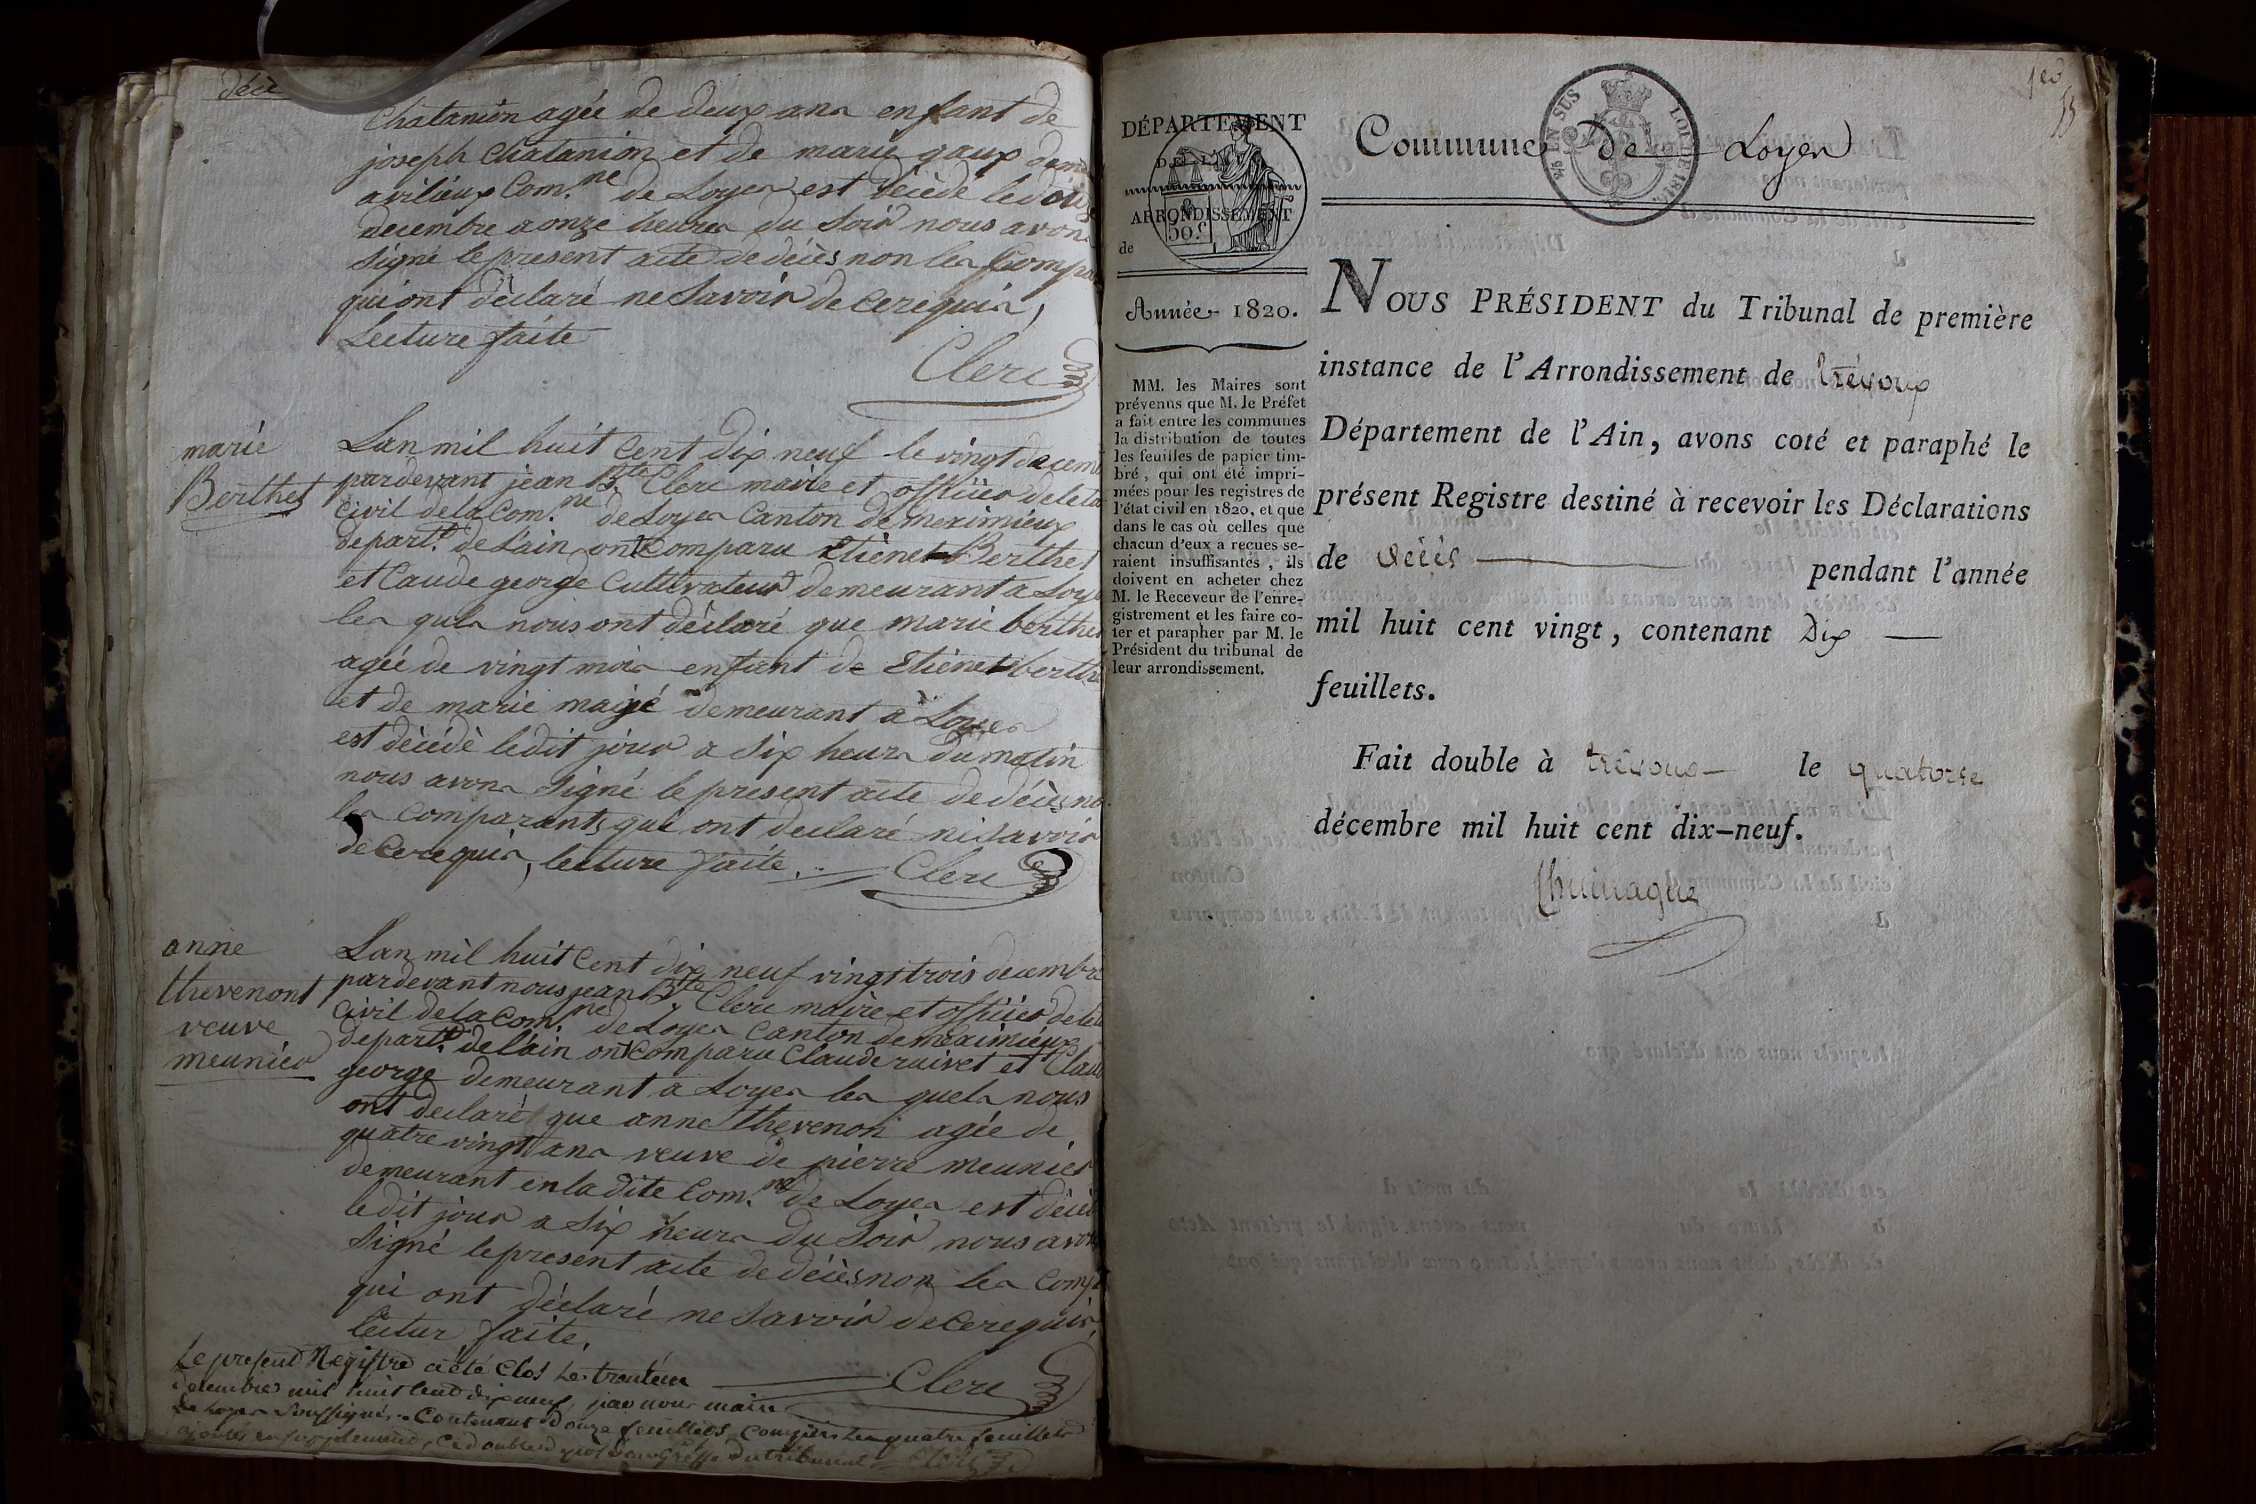 décè
Chatanion agée de deux ans enfant de
joseph Chatanion et de marie gaux
avilieux Com.ne de Loyes est décédé le
decembre a onze heures du soir nous avons
signé le present acte de décès non les Comp
qui ont déclaré ne savoir de ce requis,
Lecture faite
Clerc
marie
Berthet
Lan mil huit Cent dix neuf le vingt decem
pardevant jean Bte Clerc maire et officier de leta
Civil de la Com.ne de Loyes Canton de meximieux
depart.t de l'ain, ont Comparu Etiene Berthet
et Claude george Cultivateur demeurant a Loye
les quels nous ont déclaré que marie berthet
agée de vingt mois enfant de Etiene berth
et de marie demeurant a Loyes
est décédé ledit jour a six heurs du matin
nous avons signé le present acte de décès no
les Comparants qui ont declaré ni savoir
de Ce requis, lecture faite.
Clerc
anne
thevenont
veuve
meunier
Lan mil huit Cent dix neuf vingt trois decembre
pardevant nous jean Bte Clerc maire et officier de
Civil de la Com.ne de Loyes Canton de meximieux
depart.t de l'ain ont Comparu Claude ruivet et Clau
george demeurant a Loyes les quels nous
ont declaré que anne thevenon agée de
quatre vingt ans veuve de pierre meunier
demeurant en la dite Com.ne de Loyes est décéd
ledit jour a six heurs du soir nous avon
signé le present acte de décès non les Comp
qui ont déclaré ne savoir de Ce requis,
lectur faite.
Clerc
Le present Registre a été Clos Le trenteun
decembre mil huit Cent dix neuf, par nous maire
de Loyes soussigné. Contenant Douze feuillets, Compris Les quatre feuillets
DÉPARTEMENT
DE L'
ARRONDISSEMENT
de
50.c
Année 1820.
MM. les Maires sont
prévenus que M. le Préfet
a fait entre les communes
la distribution de toutes
les feuilles de papier tim-
bré, qui ont été impri-
mées pour les registres de
l'état civil en 1820, et que
dans le cas où celles que
chacun d'eux a reçues se-
raient insuffisantes, ils
doivent en acheter chez
M. le Receveur de l'enre-
gistrement et les faire co-
ter et parapher par M. le
Président du tribunal de
leur arrondissement.
EN SUS
LOI DE 1816
Commune de Loyes
NOUS PRÉSIDENT du Tribunal de première
instance de l'Arrondissement de trévoux
Département de l'Ain, avons coté et paraphé le
présent Registre destiné à recevoir les Déclarations
de décès pendant l'année
mil huit cent vingt, contenant Dix
feuillets.
Fait double à trévoux le quatorze
décembre mil huit cent dix-neuf.